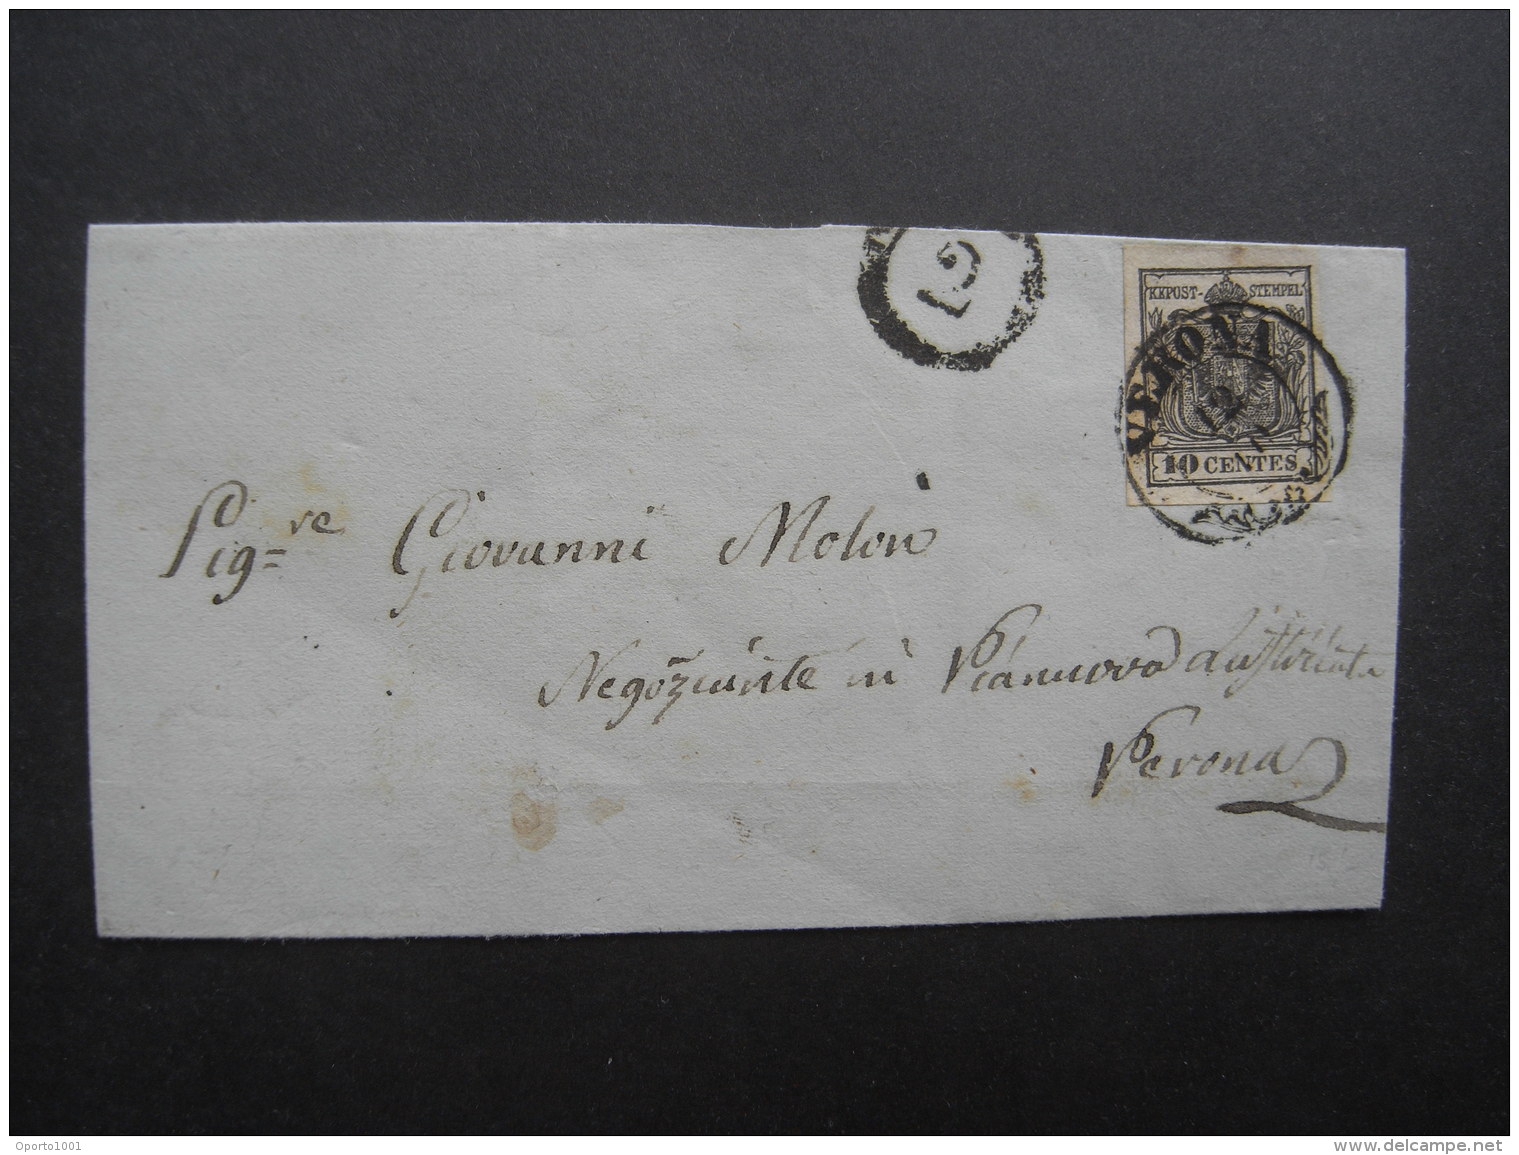 2
KKPOST-STEMPEL
VERONA
12
10 CENTES
Sig.re Giovanni Molon
Negoziante in
Verona
Oporto1001
www.delcampe.net